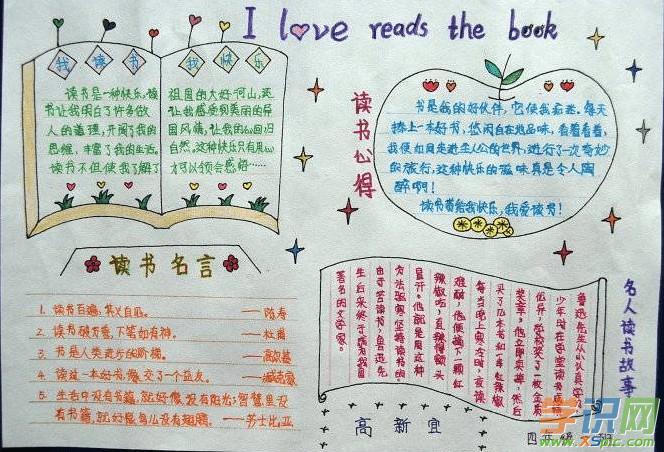 I love reads the book
我读书 我快乐
读书是一种快乐,读
书让我明白了许多做
人的道理,开阔了我的
思维,丰富了我的生活。
读书不但使我了解了
祖国的大好河山,还
让我感觉到美丽的异
国风情,让我的心回归
自然,这种快乐只有用心
才可以领会感好……
读书心得
书是我的好伙伴,它使我着迷。每天
捧上一本好书,悠闲自在地品味,看着看着,
我便如同走进主人公的世界,进行了一次奇妙
的旅行,这种快乐的滋味真是令人陶
醉啊!
读书带给我快乐,我爱读书!
读书名言
1. 读书百遍,其义自见。——陈寿
2. 读书破万卷,下笔如有神。——杜甫
3. 书是人类进步的阶梯。——高尔基
4. 读过一本好书,像交了一个益友。——臧克家
5. 生活中没有书籍,就好像没有阳光;智慧里没
有书籍,就好像鸟儿没有翅膀。——莎士比亚
名人读书故事
鲁迅先生从小认真学习。
少年时在 学堂读书,成绩
优异,学校奖了一枚金质
奖章,他立即卖掉,然后
买了几本书和一串红辣椒
每当晚上寒冷时,夜读
难耐,他便摘下一颗红
辣椒吃,直辣得额头
冒汗。他就是用这种
方法驱寒坚持读书的。
由于苦读书,鲁迅先
生后来终于成为我国
著名的文学家。
高新宜
四年级 班
学识网
www.xspic.com